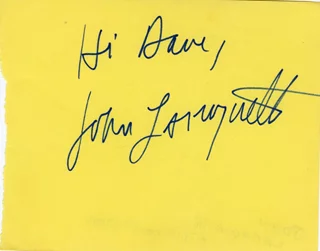 Hi Dave,
John Larroquette